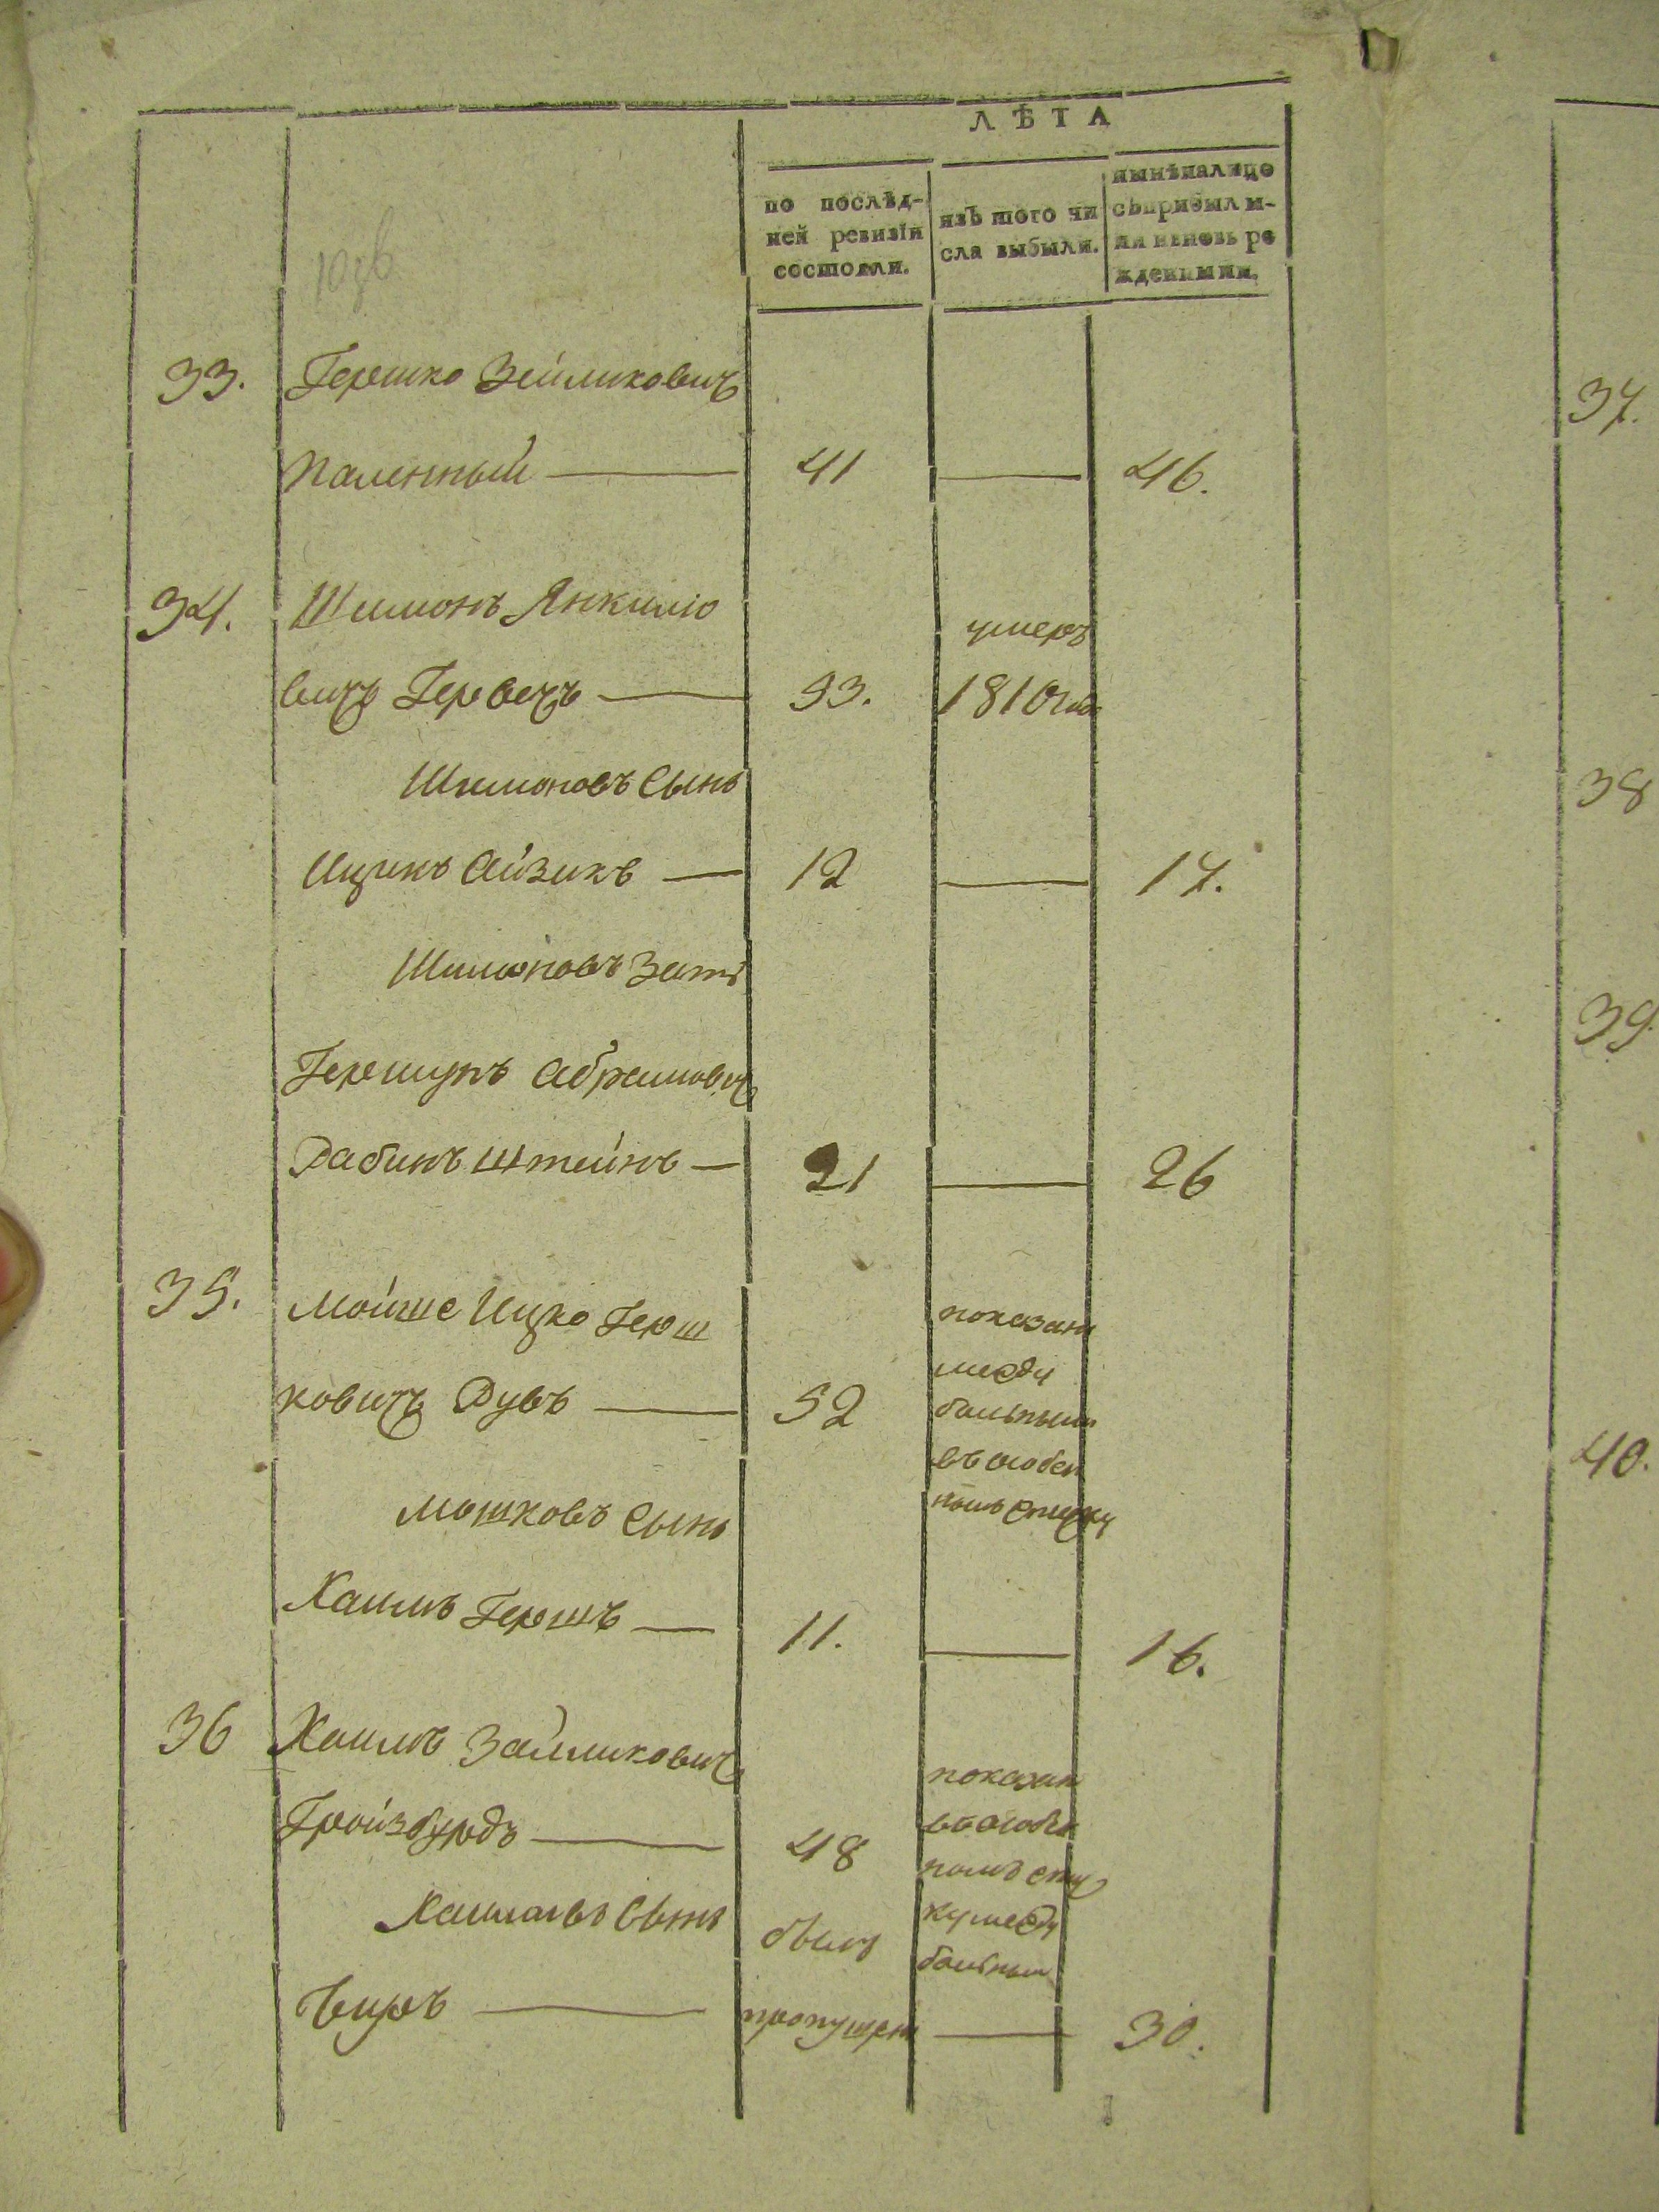 ЛѢТА
по послѣд-
ней ревизіи
состояли.
изъ того чи
сла выбыли.
нынѣ налицо
съ прибылы-
ми и вновь ро
жденными.
33.
Гершко Зейликовичъ
Паленный — 41 — 46.
34. Шимонъ Янкилю
умеръ
вичъ — 53. 1810 года
Шимоновъ Сынъ
Ицикъ Айзикъ — 12 — 17.
Шимоновъ Зять
Гершунъ Абрамович
Рабинъ Штейнъ — 21 — 26
35. Мойше Ицко Герш
ковичъ Дувъ — 52
показанъ
между
больными
въ особен
номъ списку
Мошковъ Сынъ
Хаимъ Гершъ — 11. — 16.
36 Хаимъ Зайликович
Гройзбурдъ — 48
показан
въ особен
номъ спис
ку между
больным
Хаимовъ Сынъ
былъ
пропущенъ — 30.
37.
38
39.
40.